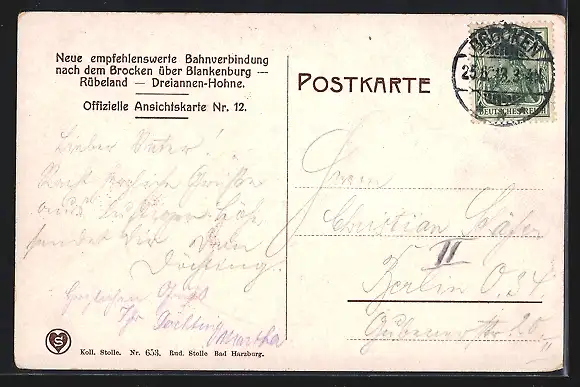 Neue empfehlenswerte Bahnverbindung
nach dem Brocken über Blankenburg —
Rübeland — Dreiannen-Hohne.
Offizielle Ansichtskarte Nr. 12.
POSTKARTE
BROCKEN
25.8.13.3-4N
DEUTSCHES REICH
Lieber Vater!
Recht herzliche Grüße
aus luftiger Höh
sendet Dir Dein
Herzlichen Gruß
Ihr
Martha
Herrn
Christian Schäfer
II
Berlin O. 34
Gubener Str 20
II
S
Koll. Stolle. Nr. 653. Rud. Stolle Bad Harzburg.